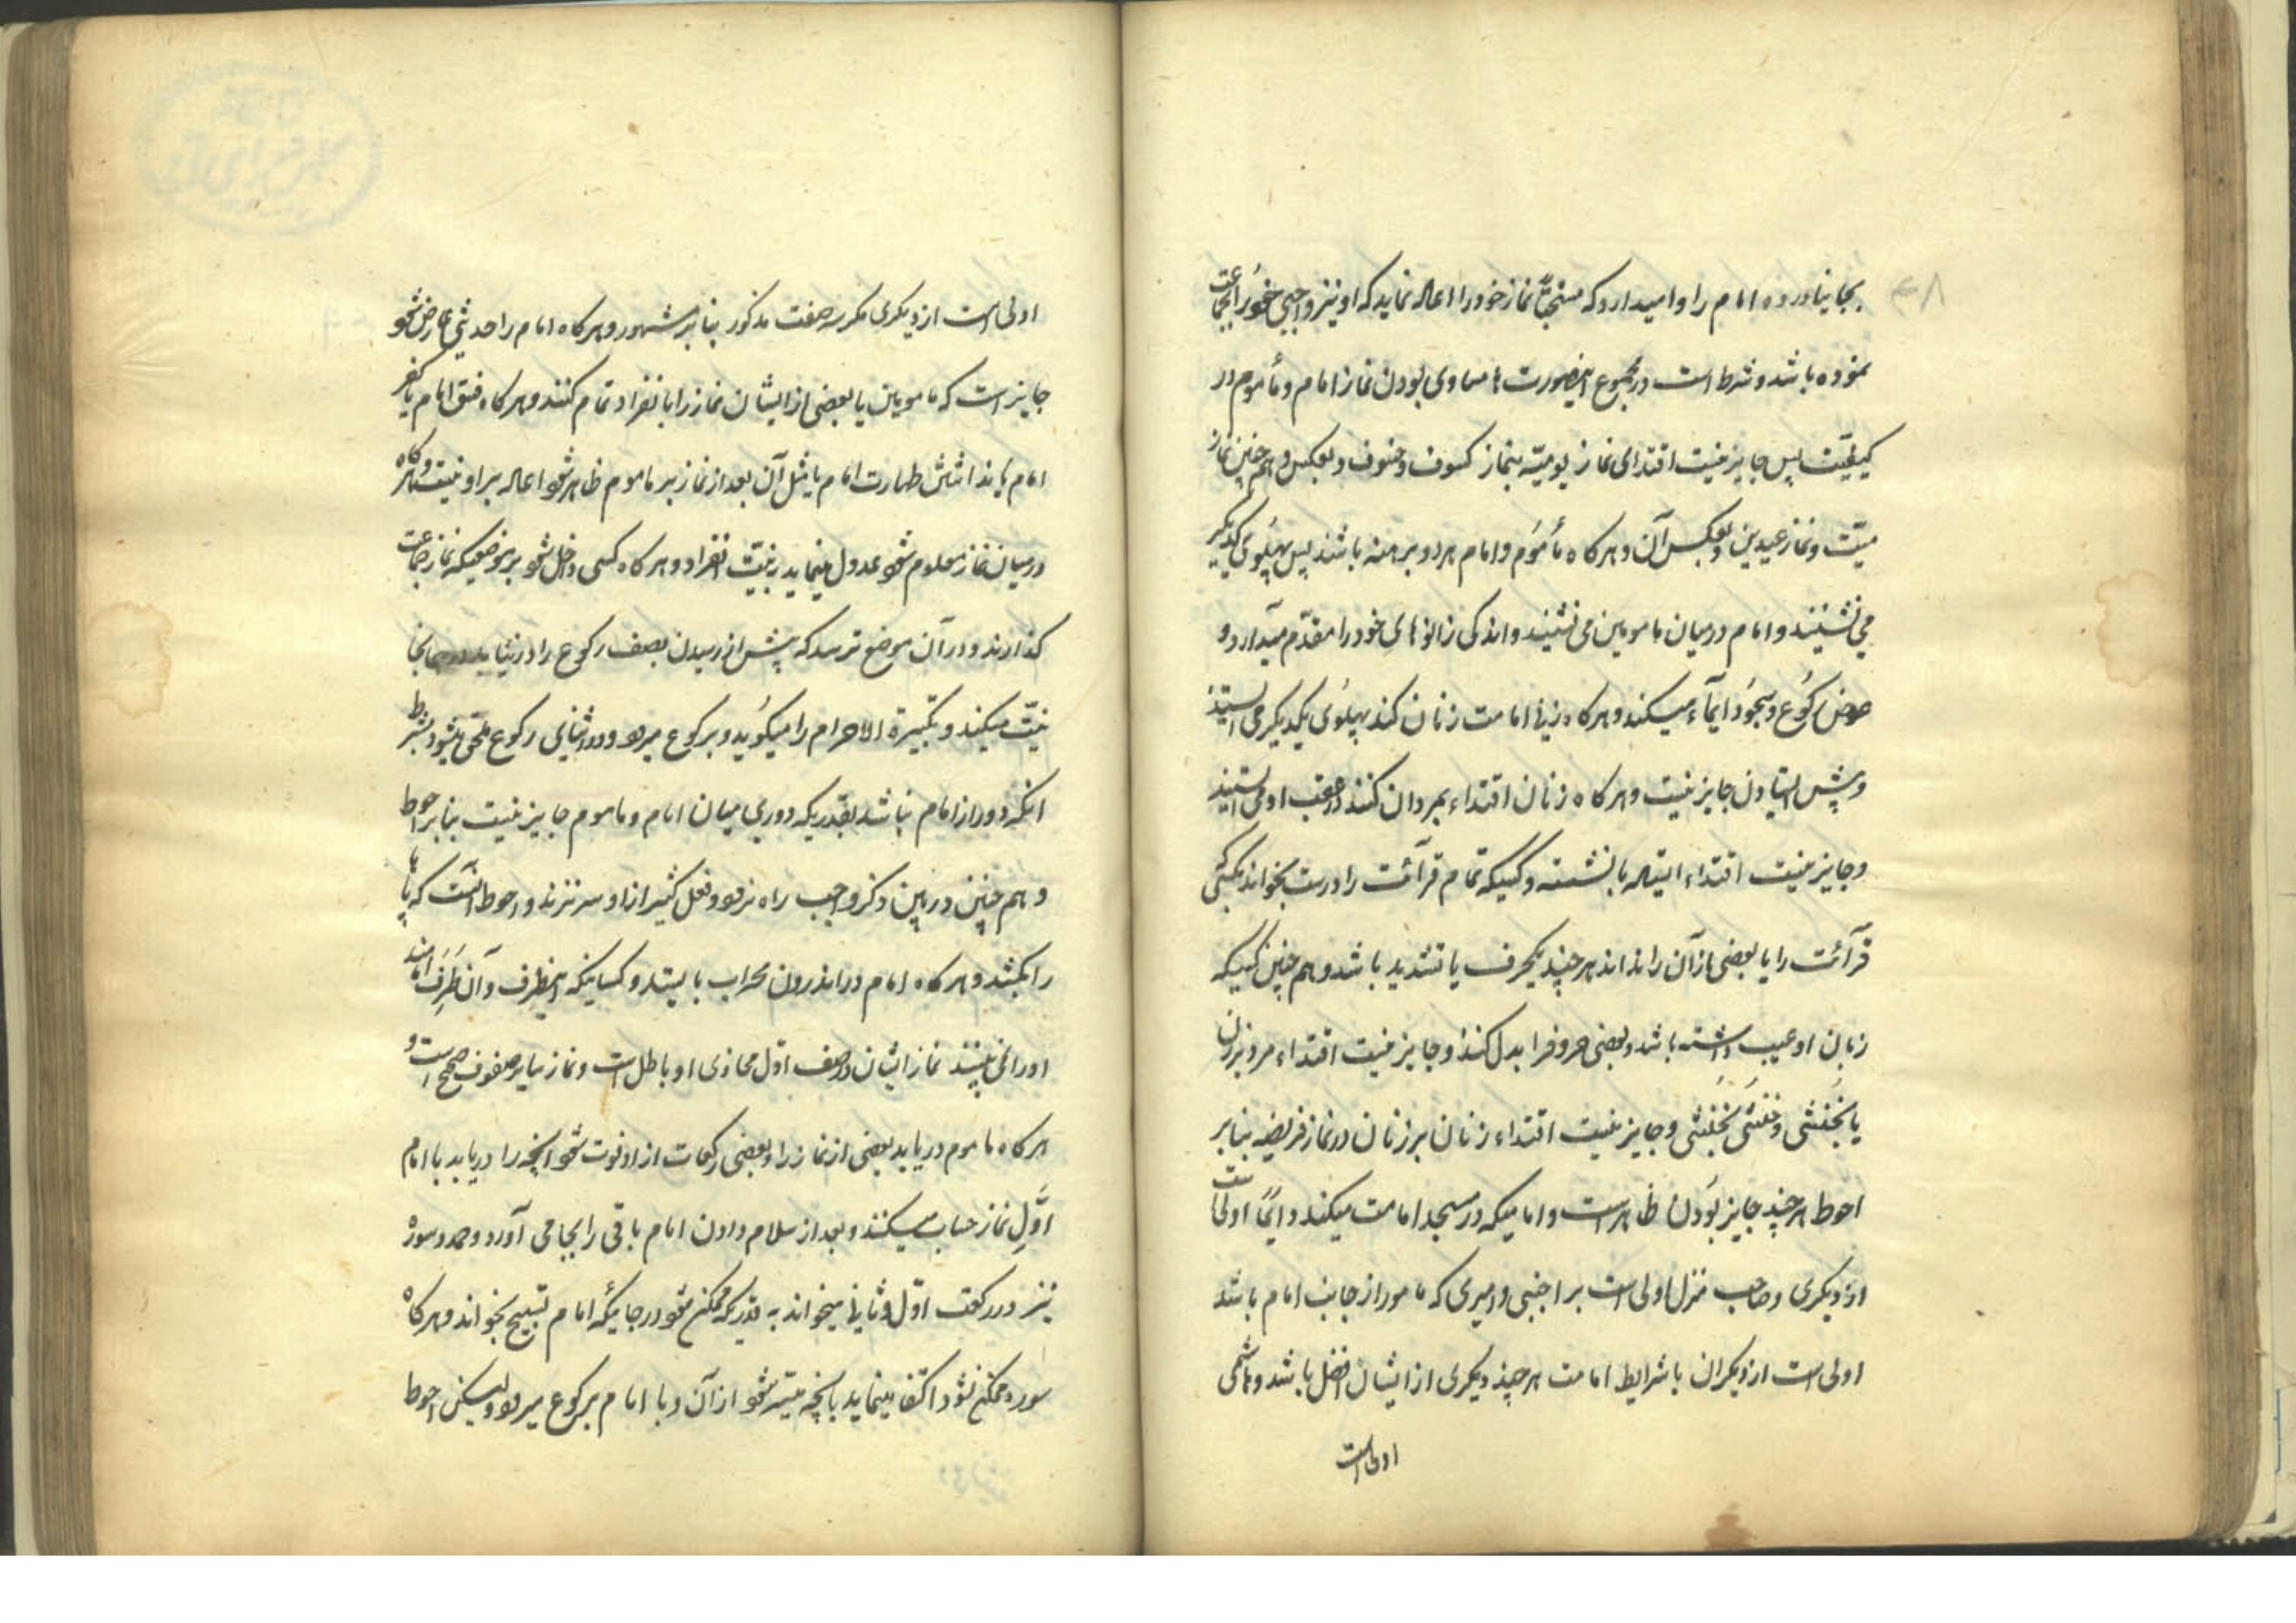 ۴۸
بجا نیاورده امام را وامیدارد که مستحبّاً نماز خود را اعاده نماید که او نیز واجبی خود را بجماعت
نموده باشد و شرط است در مجموع اینصورت‌ها مساوی بودن نماز امام و مأموم در
کیفیّت پس جایز نیست اقتدای نماز یومیّه بنماز کسوف و خسوف و بعکس و هم چنین نماز
میّت و نماز عیدین و بعکس آن و هر کاه مأموم و امام هر دو برهنه باشند پس پهلوی یکدیگر
می نشینند و امام در میان مامومین می نشیند و اندکی زانوهای خود را مقدّم میدارد و
عوض رکوع و سجود ایمآء میکنند و هر کاه زنی امامت زنان کند پهلوی یکدیگر می ایستند
و پیش ایستادن جایز نیست و هر کاه زنان اقتداء بمردان کنند در عقب او می ایستند
و جایز نیست اقتداء ایستاده با نشسته و کسیکه تمام قرآئت را درست بخواند بکسی که
قرآئت را یا بعضی از آن را نداند هر چند یکحرف یا تشدید باشد و هم چنین کسیکه
زبان او عیب داشته باشد و بعضی حروف را بدل کند و جایز نیست اقتداء مرد بزن
یا بخنثی و خنثی بخنثی و جایز نیست اقتداء زنان بر زنان در نماز فریضه بنا بر
احوط هر چند جایز بودن ظاهر است و امامیکه در مسجد امامت میکند دائماً اولی است
از دیکری و صاحب منزل اولی است بر اجنبی و امیری که مامور از جانب امام باشد
اولی است از دیکران با شرایط امامت هر چند دیکری از ایشان افضل باشد و هاشمی
اولی است
اولی است از دیکری مکر سه صفت مذکور بنا بر مشهور و هر کاه امام را حدثی عارض شود
جایز است که مامومین یا بعضی از ایشان نماز را با نفراد تمام کنند و هر کاه فسق امام یا کفر
امام یا نداشتن طهارت امام یا مثل آن بعد از نماز بر ماموم ظاهر شود اعاده بر او نیست و هر کاه
در میان نماز معلوم شود عدول مینماید بنیّت انفراد و هر کاه کسی داخل شود بر موضعیکه نماز جماعت
کذارند و در آن موضع ترسد که پیش از رسیدن بصف رکوع را در نیابد در همانجا
نیّت میکند و تکبیرة الاحرام را میکوید و برکوع میرود و در اثنای رکوع ملحق میشود بشرط
آنکه دور از امام نباشد بقدریکه دوری میان امام و ماموم جایز نیست بنا بر احوط
و هم چنین در بین ذکر واجب راه نرود و فعل کثیر از او سر نزند و احوط آنست که پاها
را بکشد و هر کاه امام در اندرون محراب بایستد و کسانیکه اینطرف و آن طرف امامند
او را نمی بینند نماز ایشان در صف اوّل محاذی او باطل است و نماز سایر صفوف صحیح است و
هر کاه ماموم دریابد بعضی از نماز را و بعضی رکعات از او فوت شود آنچه را دریابد با امام
اوّل نماز حساب میکند و بعد از سلام دادن امام باقی را بجا می آورد و حمد و سوره
نیز در رکعت اوّل و ثانی میخواند به قدریکه ممکن شود در جائیکه امام تسبیح بخواند و هر کاه
سوره ممکن نشود اکتفا مینماید بآنچه میسّر شود از آن و با امام برکوع میرود و لیکن احوط